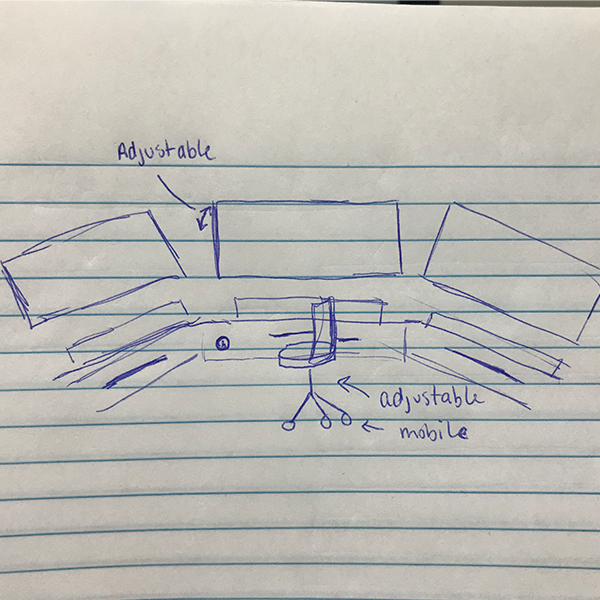 Adjustable
adjustable
mobile